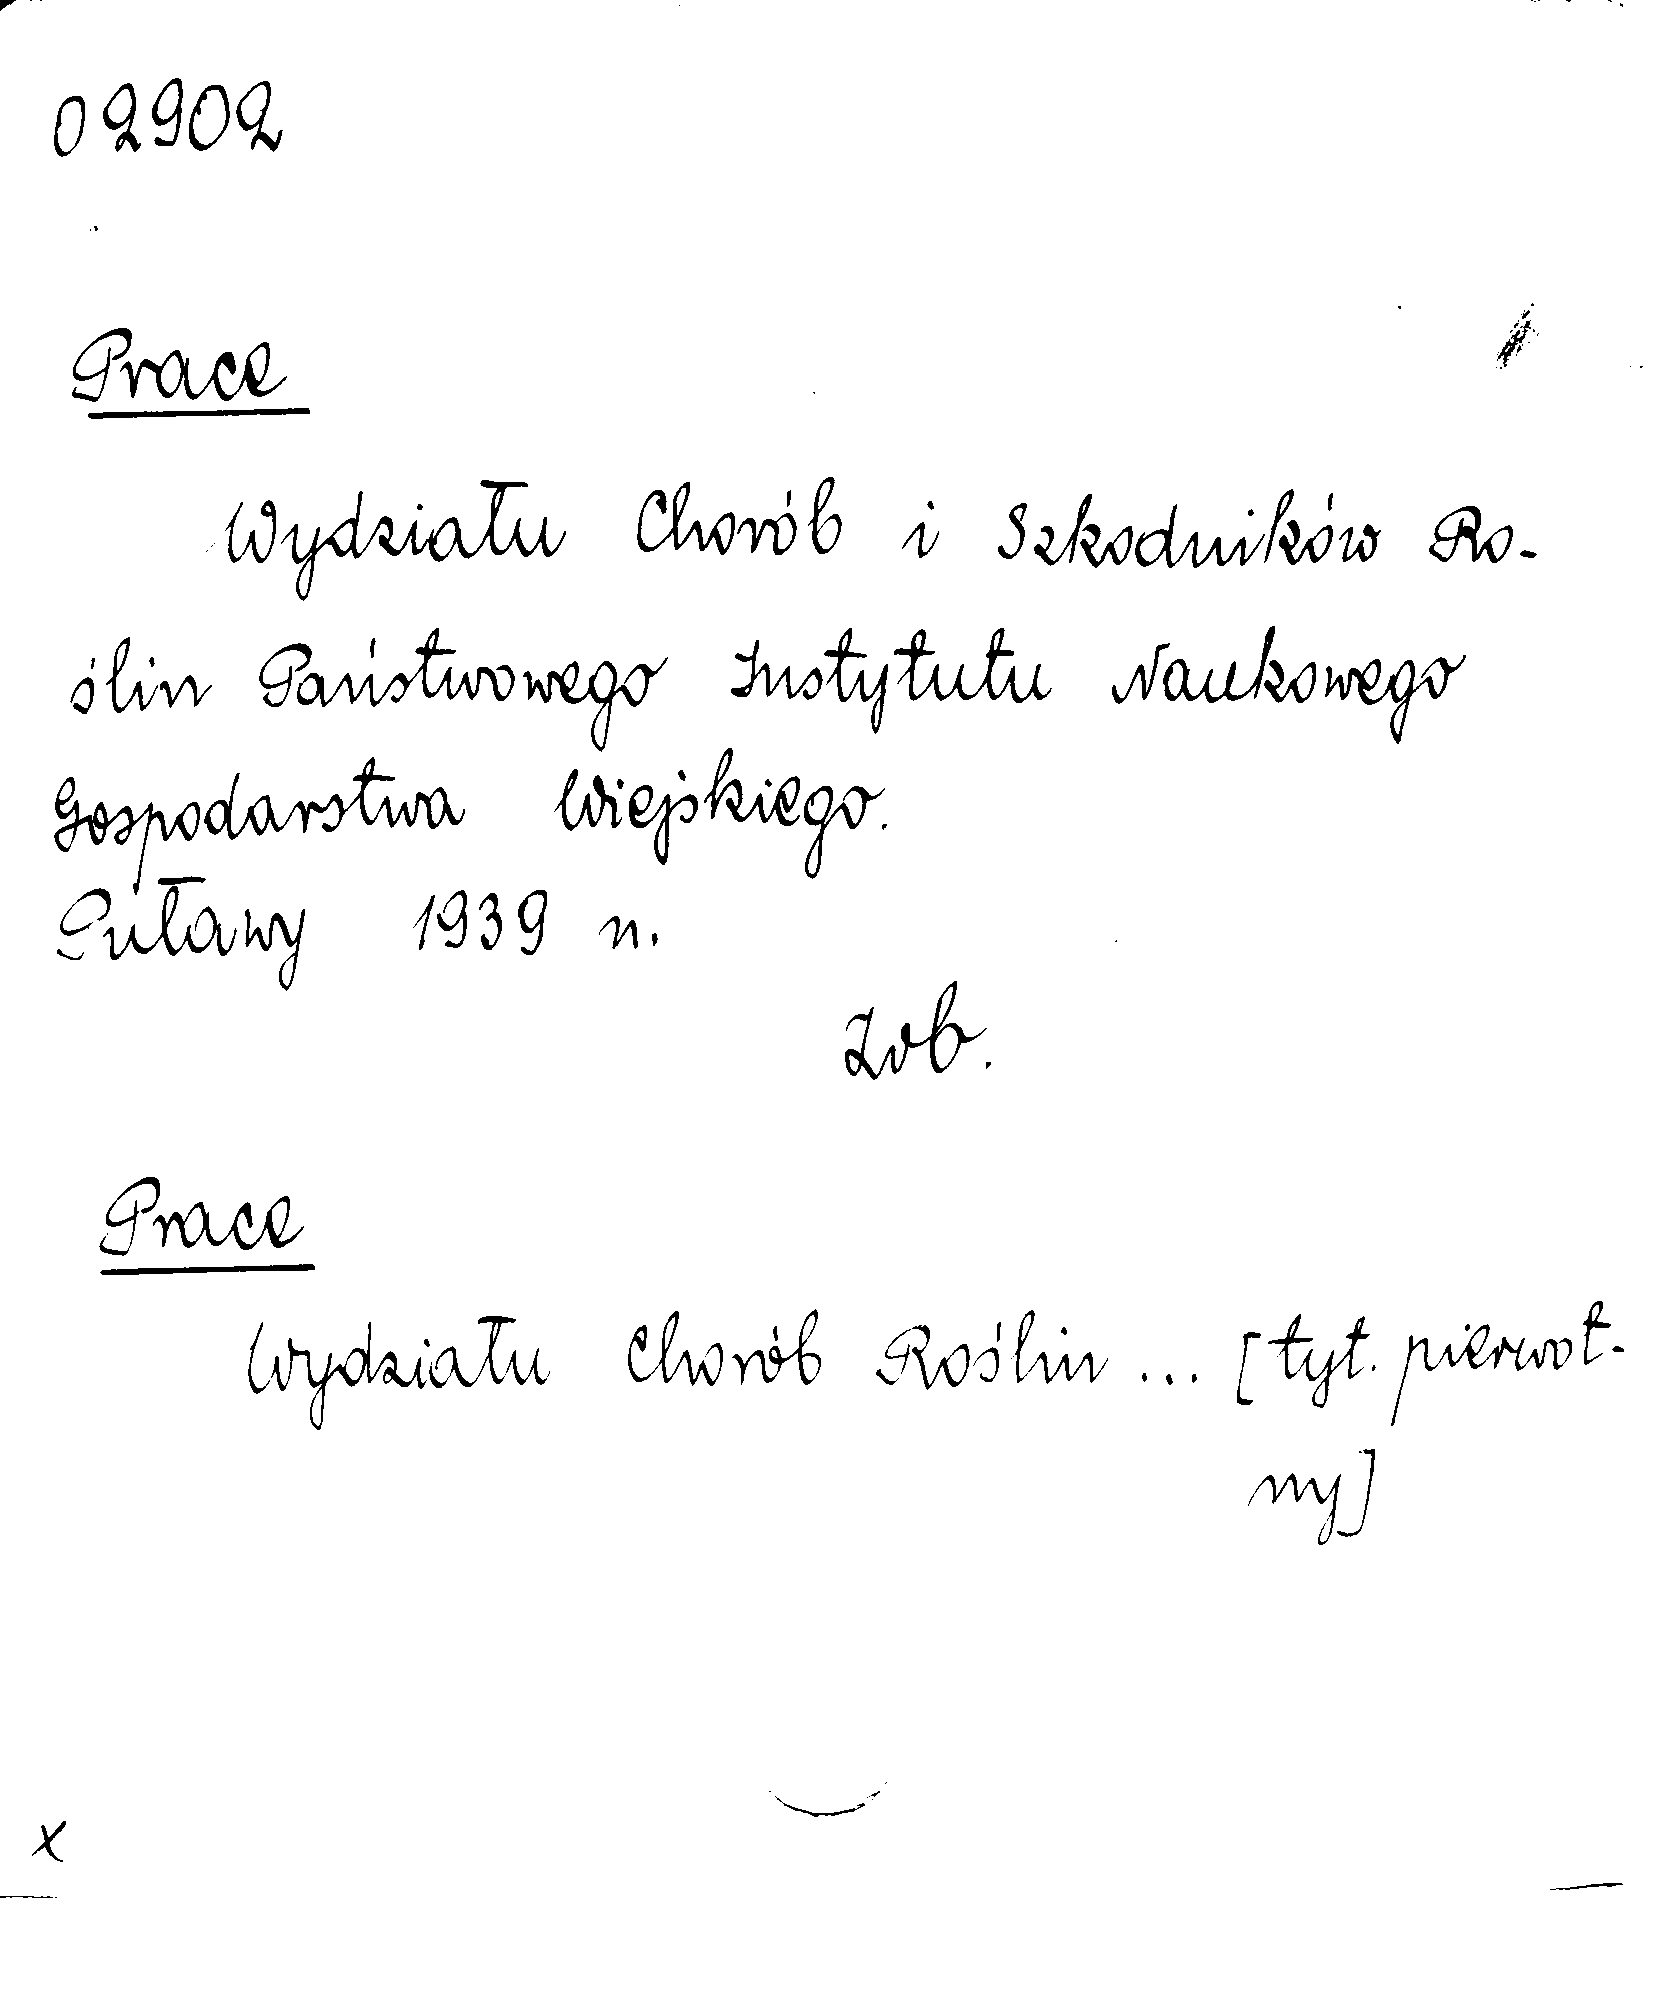 02902
Prace
Wydziału Chorób i Szkodników Ro-
ślin Państwowego Instytutu Naukowego
Gospodarstwa Wiejskiego.
Puławy 1939 n.
Zob.
Prace
Wydziału Chorób Roślin ... [tyt. pierwot-
ny]
x